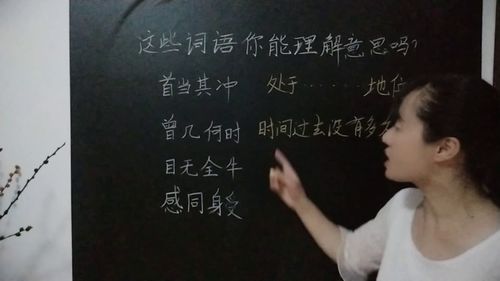 这些词语你能理解意思吗?
首当其冲 处于……地位
曾几何时 时间过去没有多久
目无全牛
感同身受